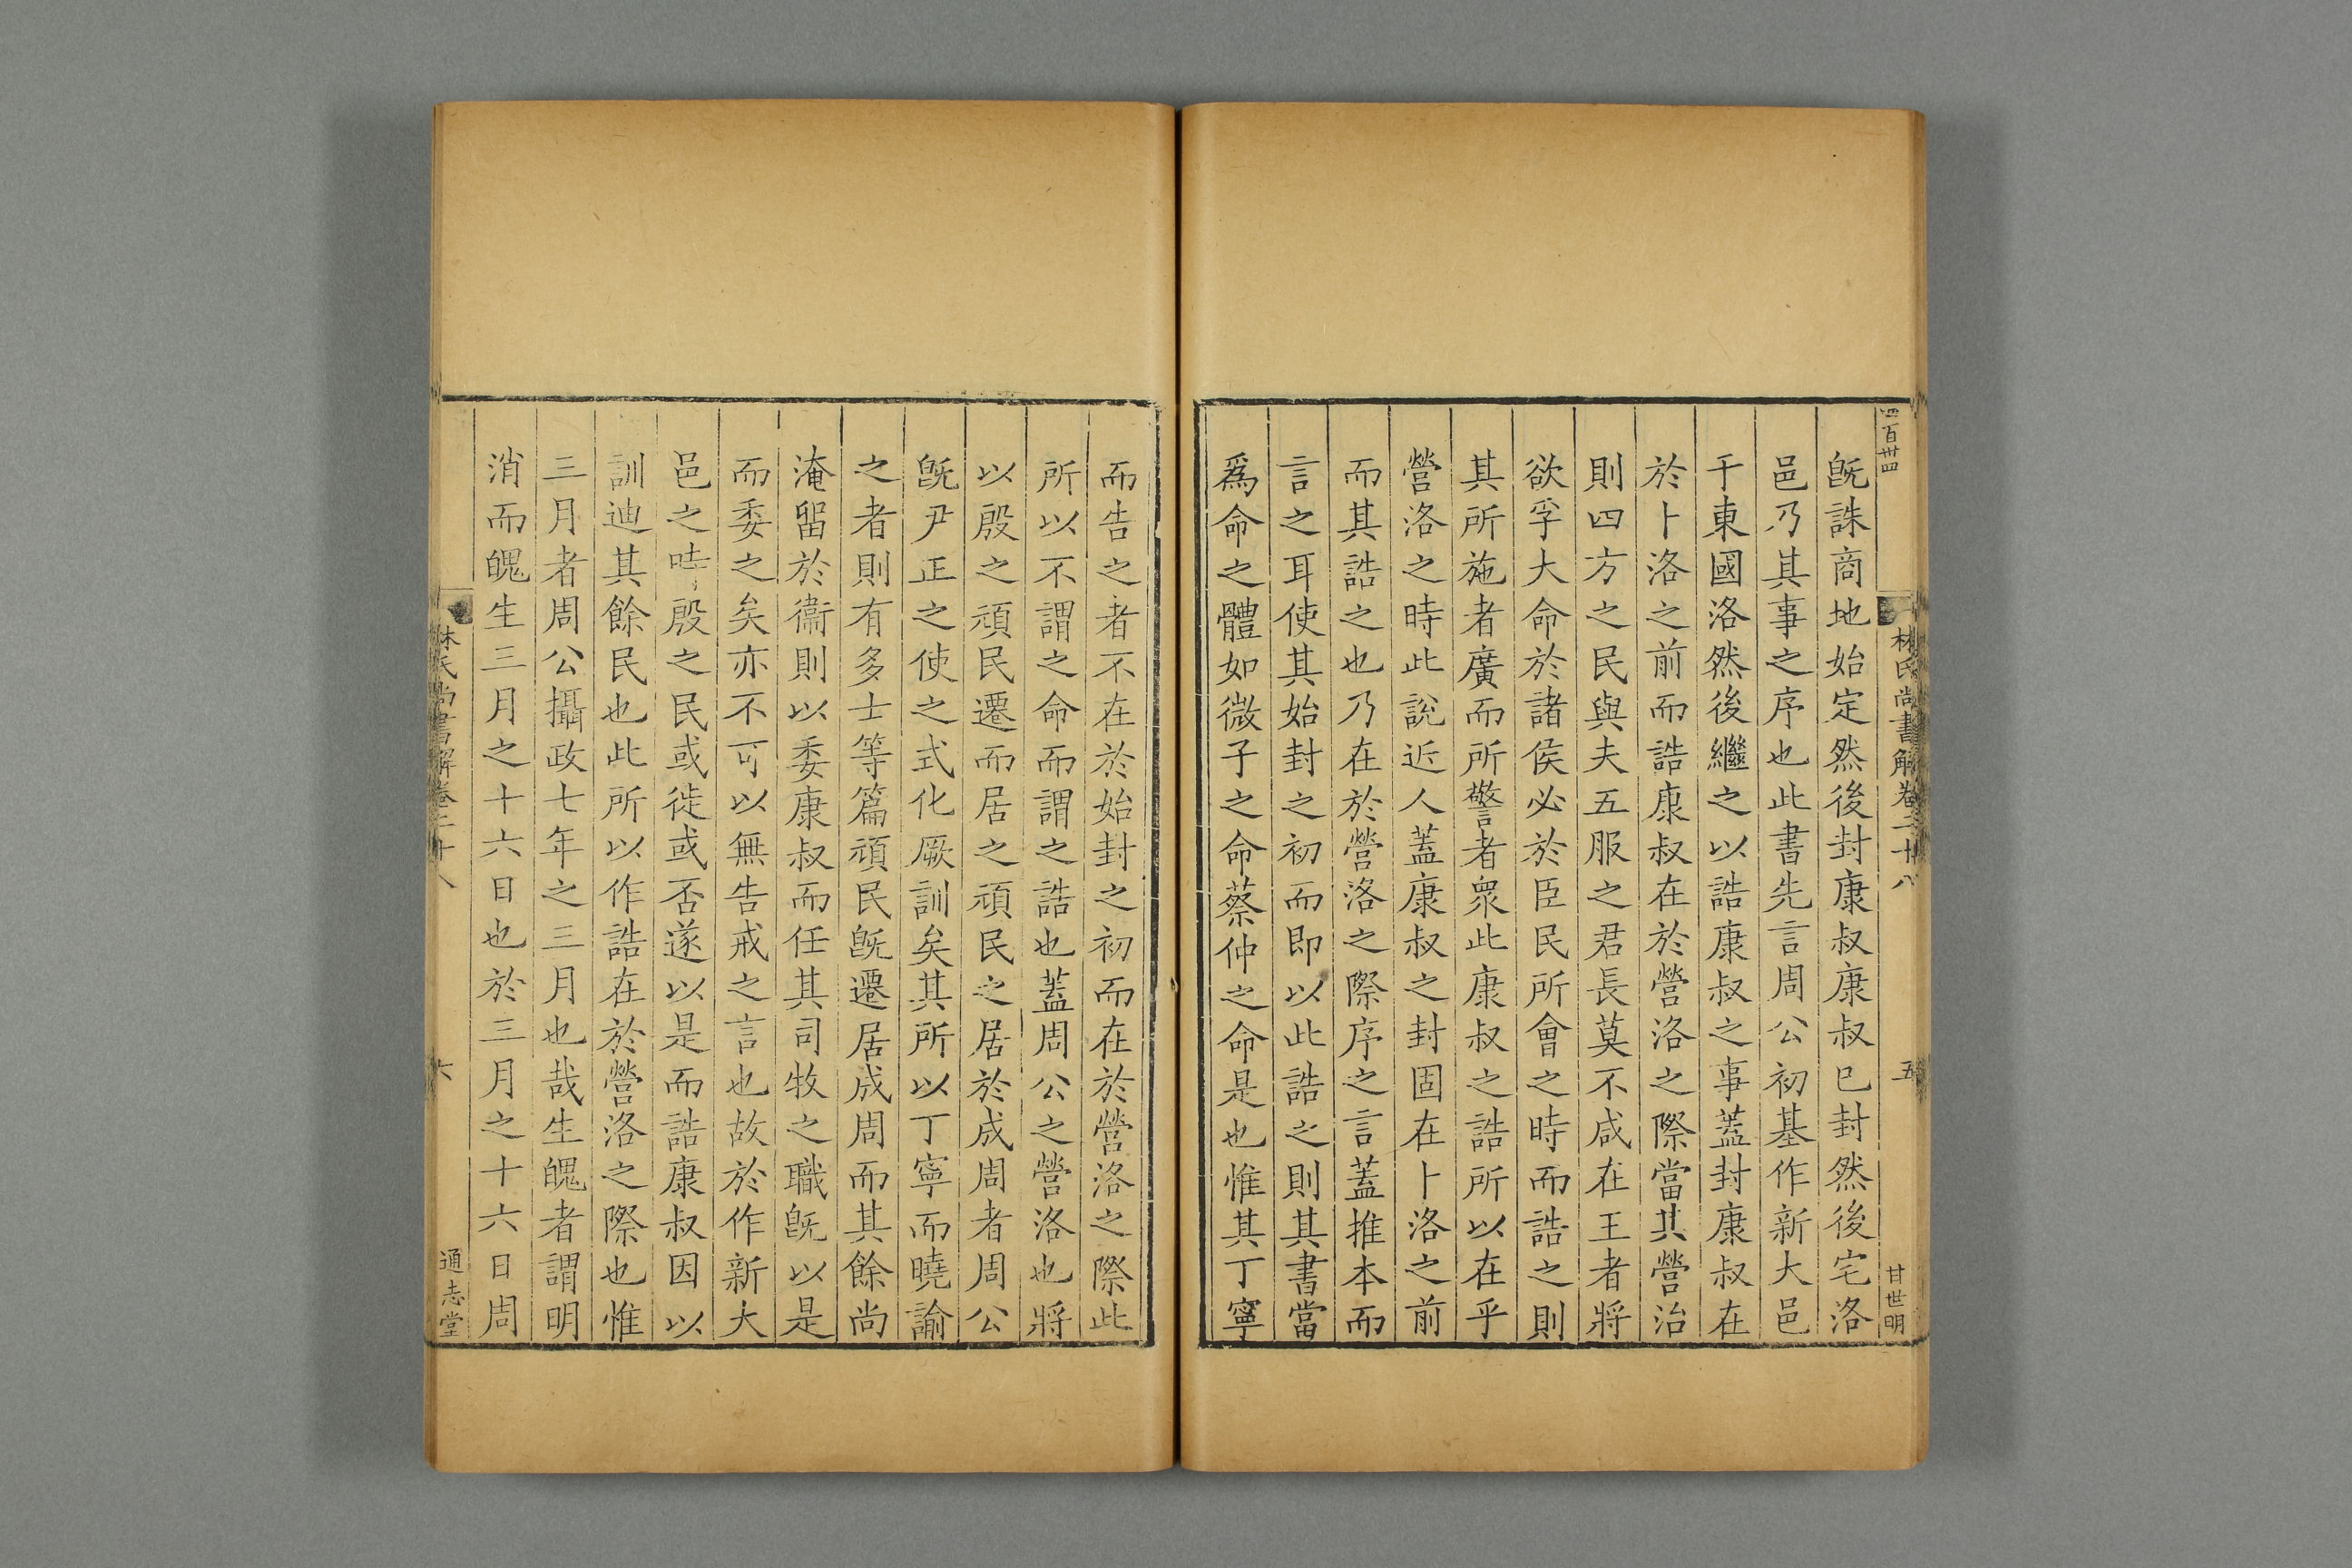 四百卅四
林氏尚書解卷二十八
五
甘世明
旣誅商地始定然後封康叔康叔已封然後宅洛
邑乃其事之序也此書先言周公初基作新大邑
于東國洛然後繼之以誥康叔之事葢封康叔在
於卜洛之前而誥康叔在於營洛之際當其營治
則四方之民與夫五服之君長莫不咸在王者將
欲孚大命於諸侯必於臣民所會之時而誥之則
其所施者廣而所警者衆此康叔之誥所以在乎
營洛之時此說近人葢康叔之封固在卜洛之前
而其誥之也乃在於營洛之際序之言葢推本而
言之耳使其始封之初而即以此誥之則其書當
爲命之體如微子之命蔡仲之命是也惟其丁寧
而告之者不在於始封之初而在於營洛之際此
所以不謂之命而謂之誥也葢周公之營洛也將
以殷之頑民遷而居之頑民之居於成周者周公
旣尹正之使之式化厥訓矣其所以丁寧而曉諭
之者則有多士等篇頑民旣遷居成周而其餘尚
淹留於衞則以委康叔而任其司牧之職旣以是
而委之矣亦不可以無告戒之言也故於作新大
邑之時殷之民或徙或否遂以是而誥康叔因以
訓迪其餘民也此所以作誥在於營洛之際也惟
三月者周公攝政七年之三月也哉生魄者謂明
消而魄生三月之十六日也於三月之十六日周
林氏尚書解卷二十八
六
通志堂